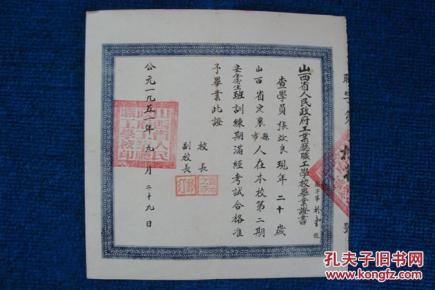 山西省人民政府工業廳職工學校畢業證書
查學員張啟良現年二十歲
山西省定襄縣市人在本校第二期
班訓練期滿經考試合格准
予畢業此證
校長
副校長
公元一九五一年九月二十九日
孔夫子旧书网
www.kongfz.com